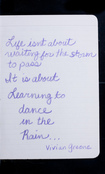 Life isn't about
waiting for the storm
to pass
It is about
Learning to
dance
in the
Rain...
Vivian Greene